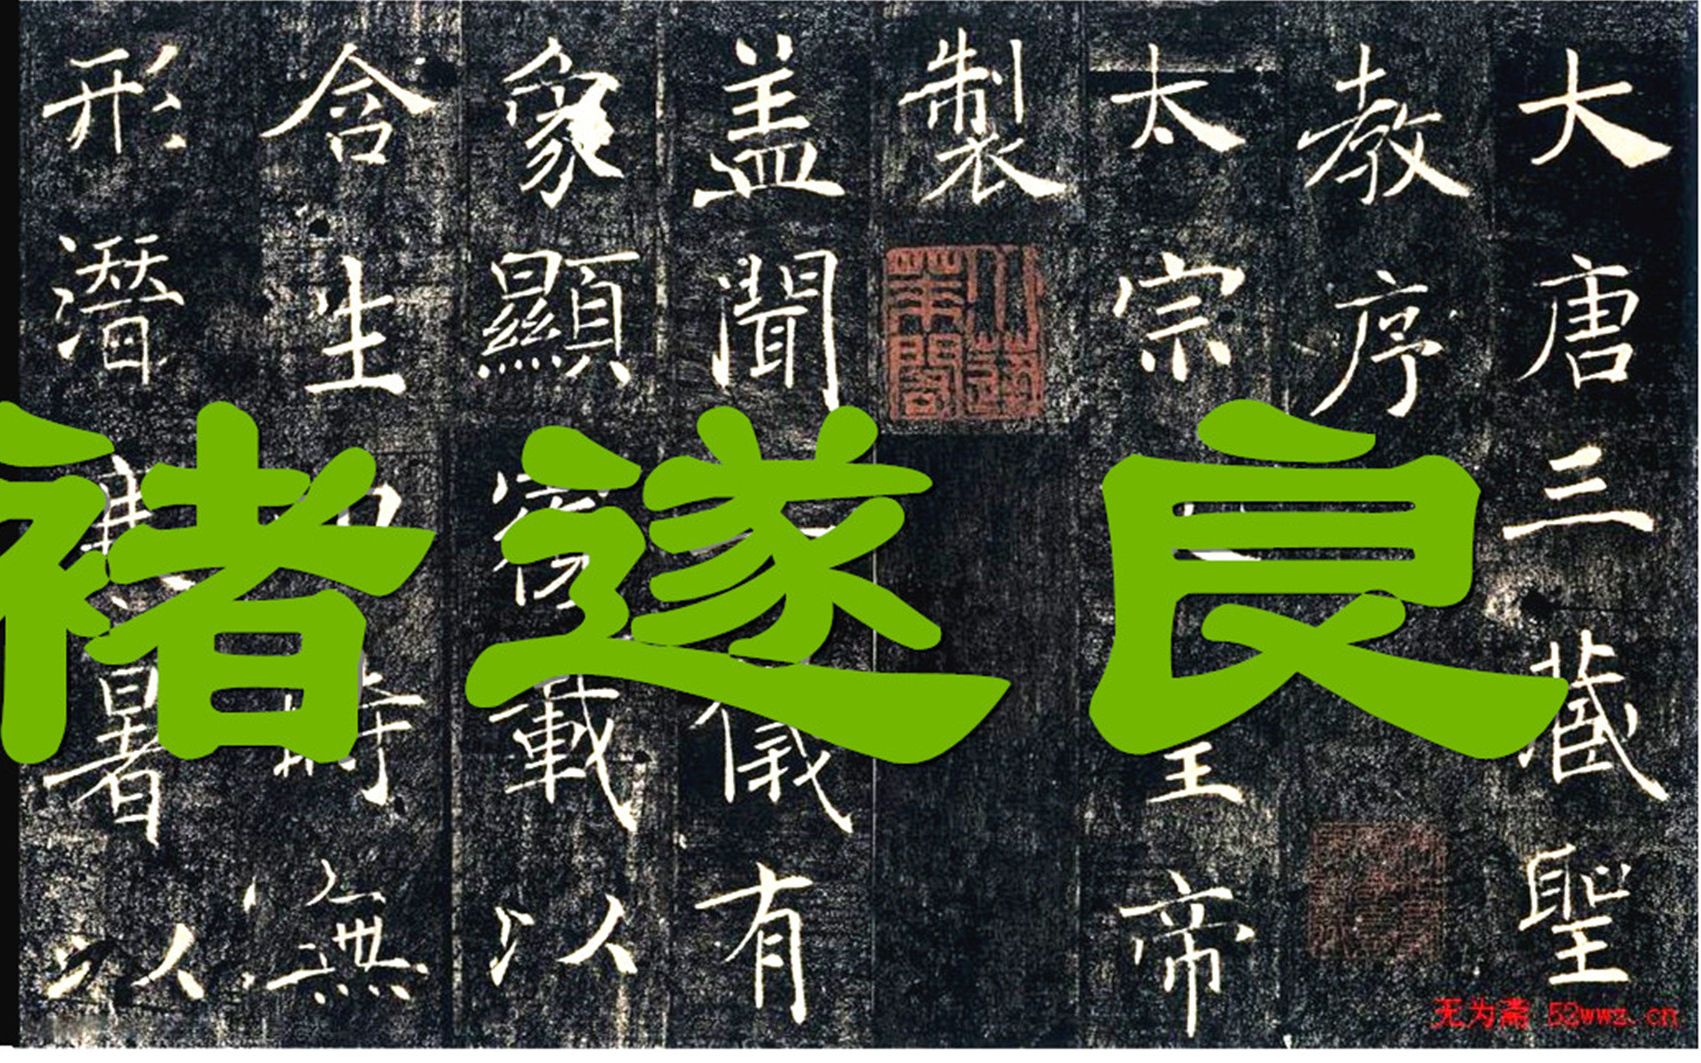 大唐三藏聖
教序
太宗帝
製
盖聞儀有
象顯載以
含生時無
形潛暑以
褚遂良
无为斋 52wwz.cn